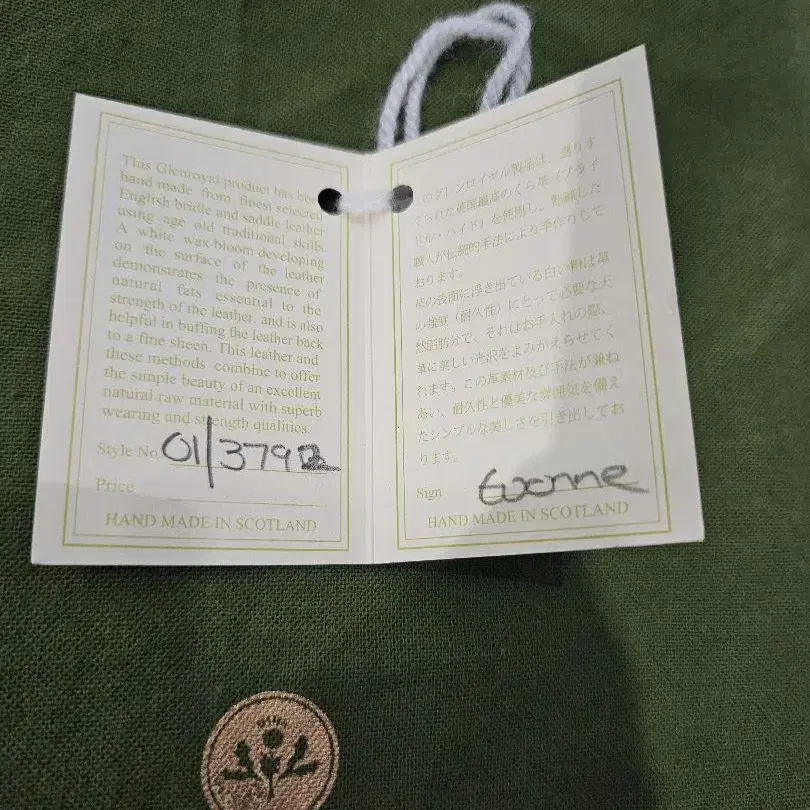 This Glenroyal product has been
hand made from finest selected
English bridle and saddle leather
using age old traditional skills.
A white wax bloom developing
on the surface of the leather
demonstrates the presence of
natural fats essential to the
strength of the leather, and is also
helpful in buffing the leather back
to a fine sheen. This leather and
these methods combine to offer
the simple beauty of an excellent
natural raw material with superb
wearing and strength qualities.
Style No. 01/3792
Price
HAND MADE IN SCOTLAND
このグレンロイヤル製品は、選りす
ぐられた英国最高のくら革(ブライ
ドル・ハイド)を使用し、熟練した
職人が伝統的手法により手作りして
おります。
革の表面に浮き出ている白い粉は革
の強度(耐久性)にとって必要な天
然脂肪分で、それはお手入れの際、
革に美しい光沢をよみがえらせてく
れます。この革素材及び手法が兼ね
あい、耐久性と優美な雰囲気を備え
たシンプルな美しさを引き出してお
ります。
Sign Evonne
HAND MADE IN SCOTLAND